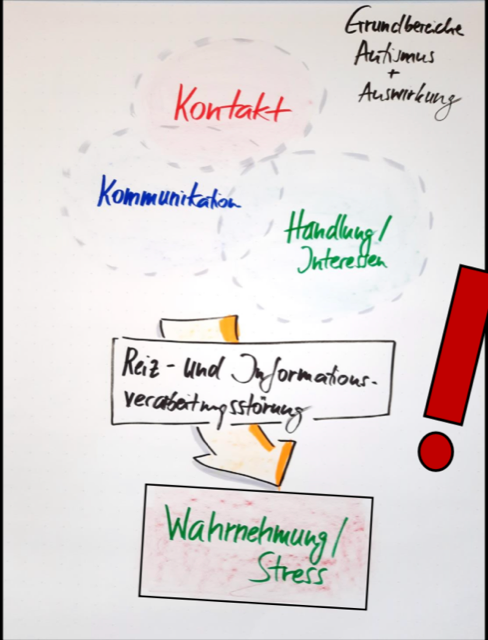 Grundbereiche
Autismus
+
Auswirkung
Kontakt
Kommunikation
Handlung/
Interessen
Reiz- und Informations-
verarbeitungsstörung
Wahrnehmung/
Stress